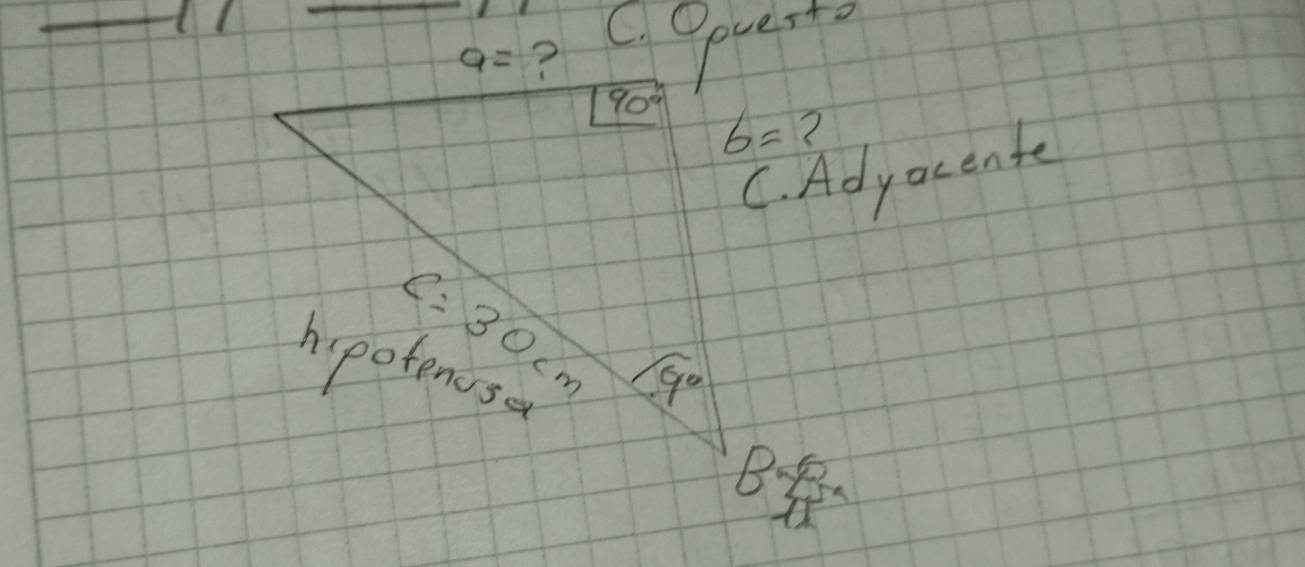 C. Opuesto
a = ?
90°
b = ?
C. Adyacente
C = 30 cm
hipotenusa
9°
B